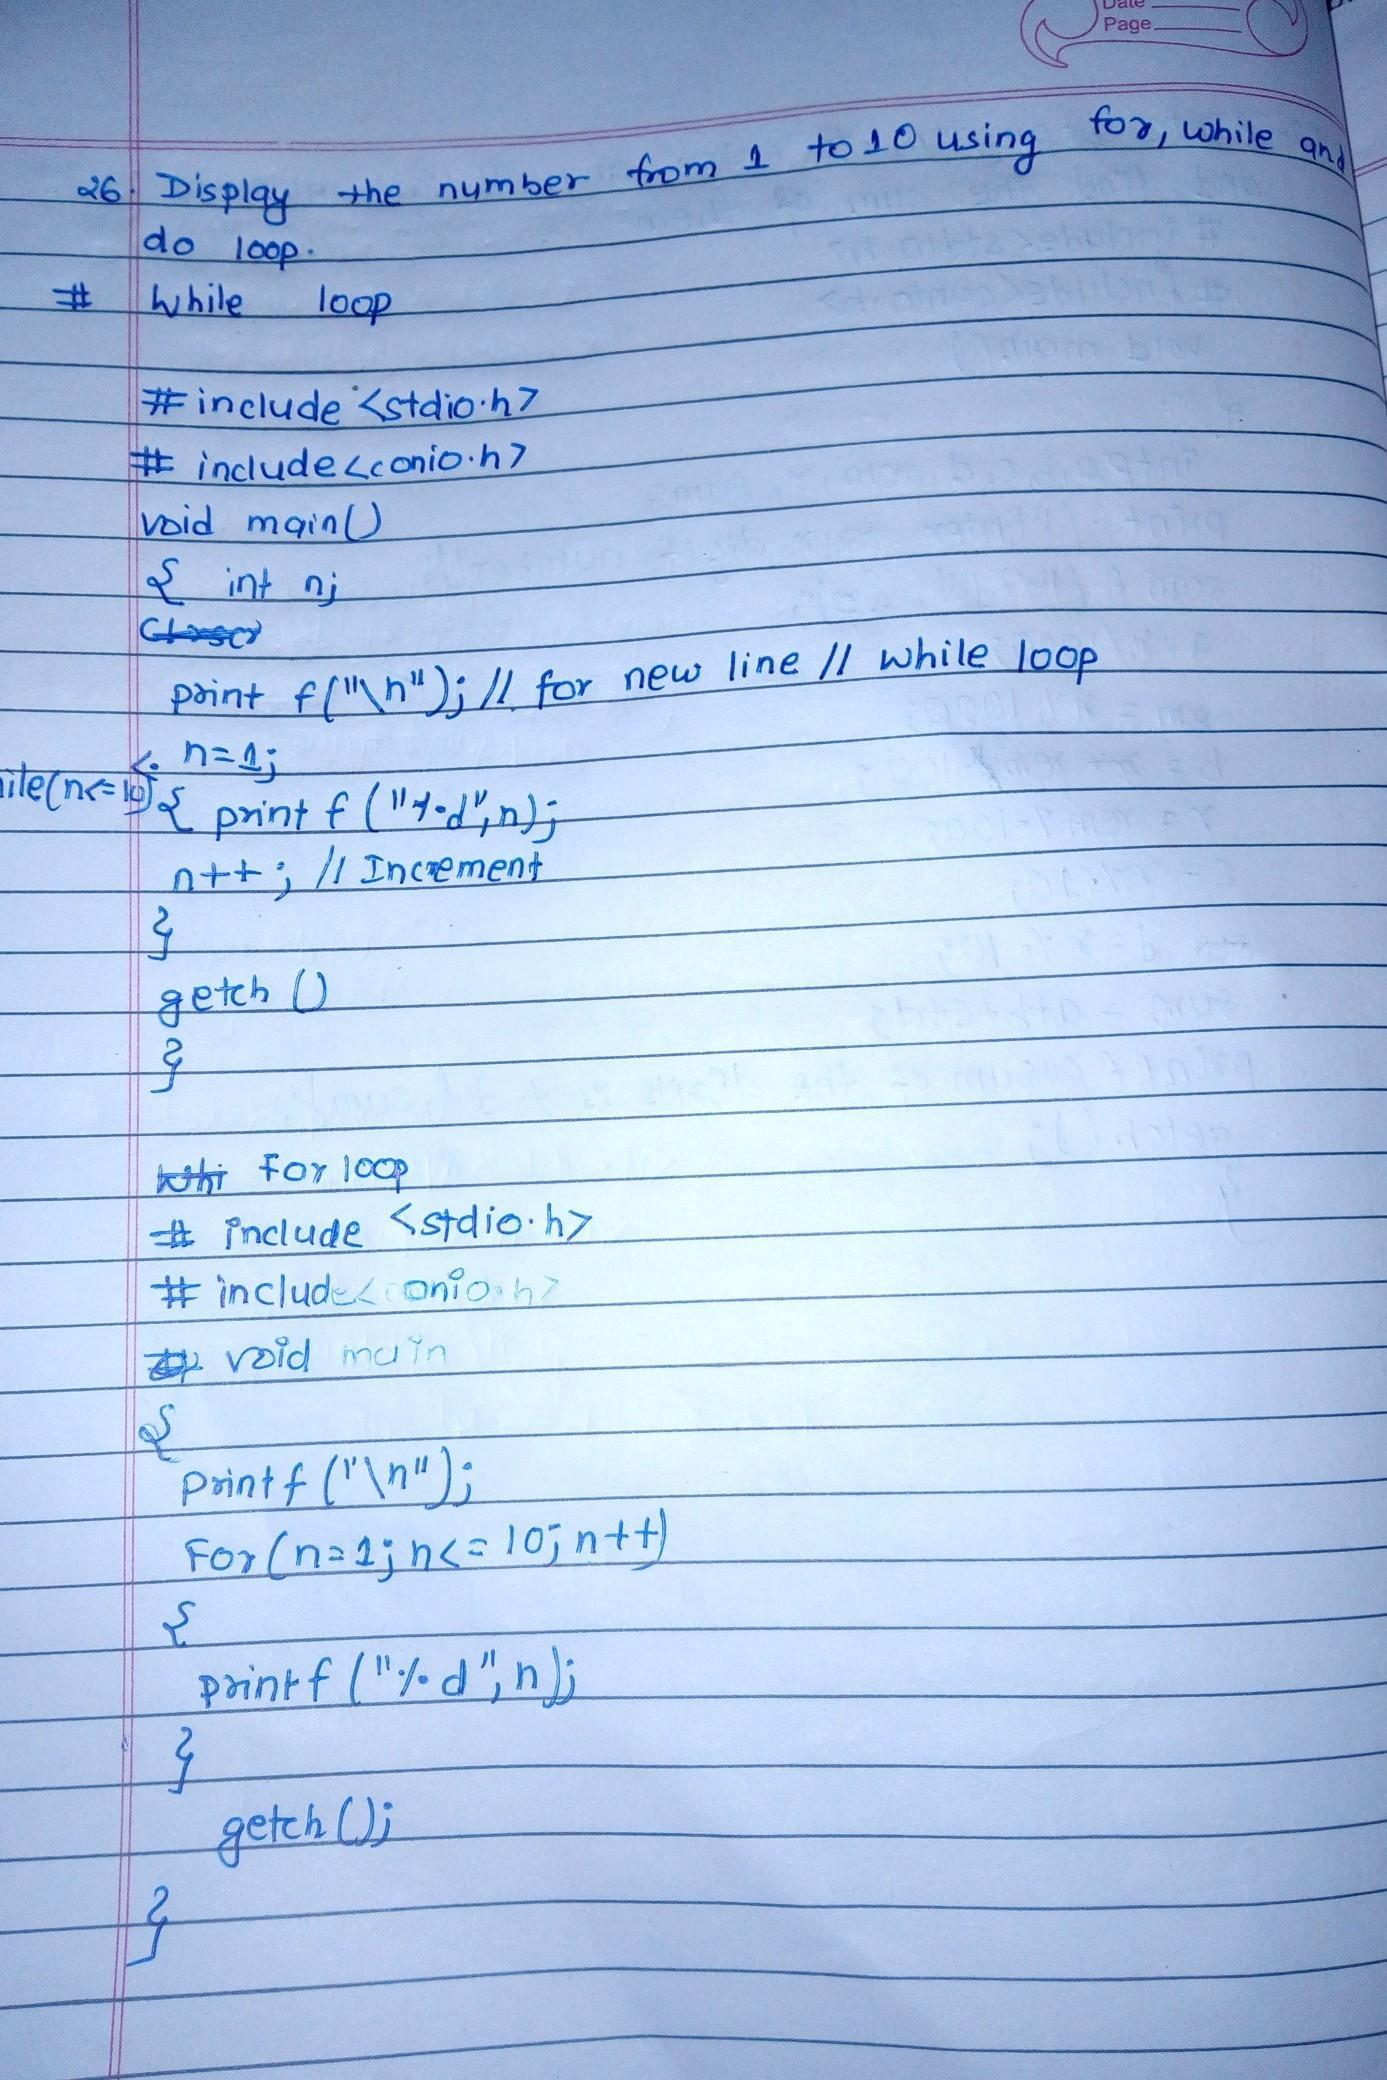 Date
Page
26. Display the number from 1 to 10 using for, while and
do loop.
# While loop
#include <stdio.h>
# include<conio.h>
void main()
{ int n;
print f("\n"); // for new line // while loop
n=1;
ile(n<=10)
{ print f ("%d",n);
n++; // Increment
}
getch ()
}
For loop
# include <stdio.h>
# include<conio.h>
void main
{
printf ("\n");
For(n=1; n<=10; n++)
{
printf ("%d",n);
}
getch ();
}